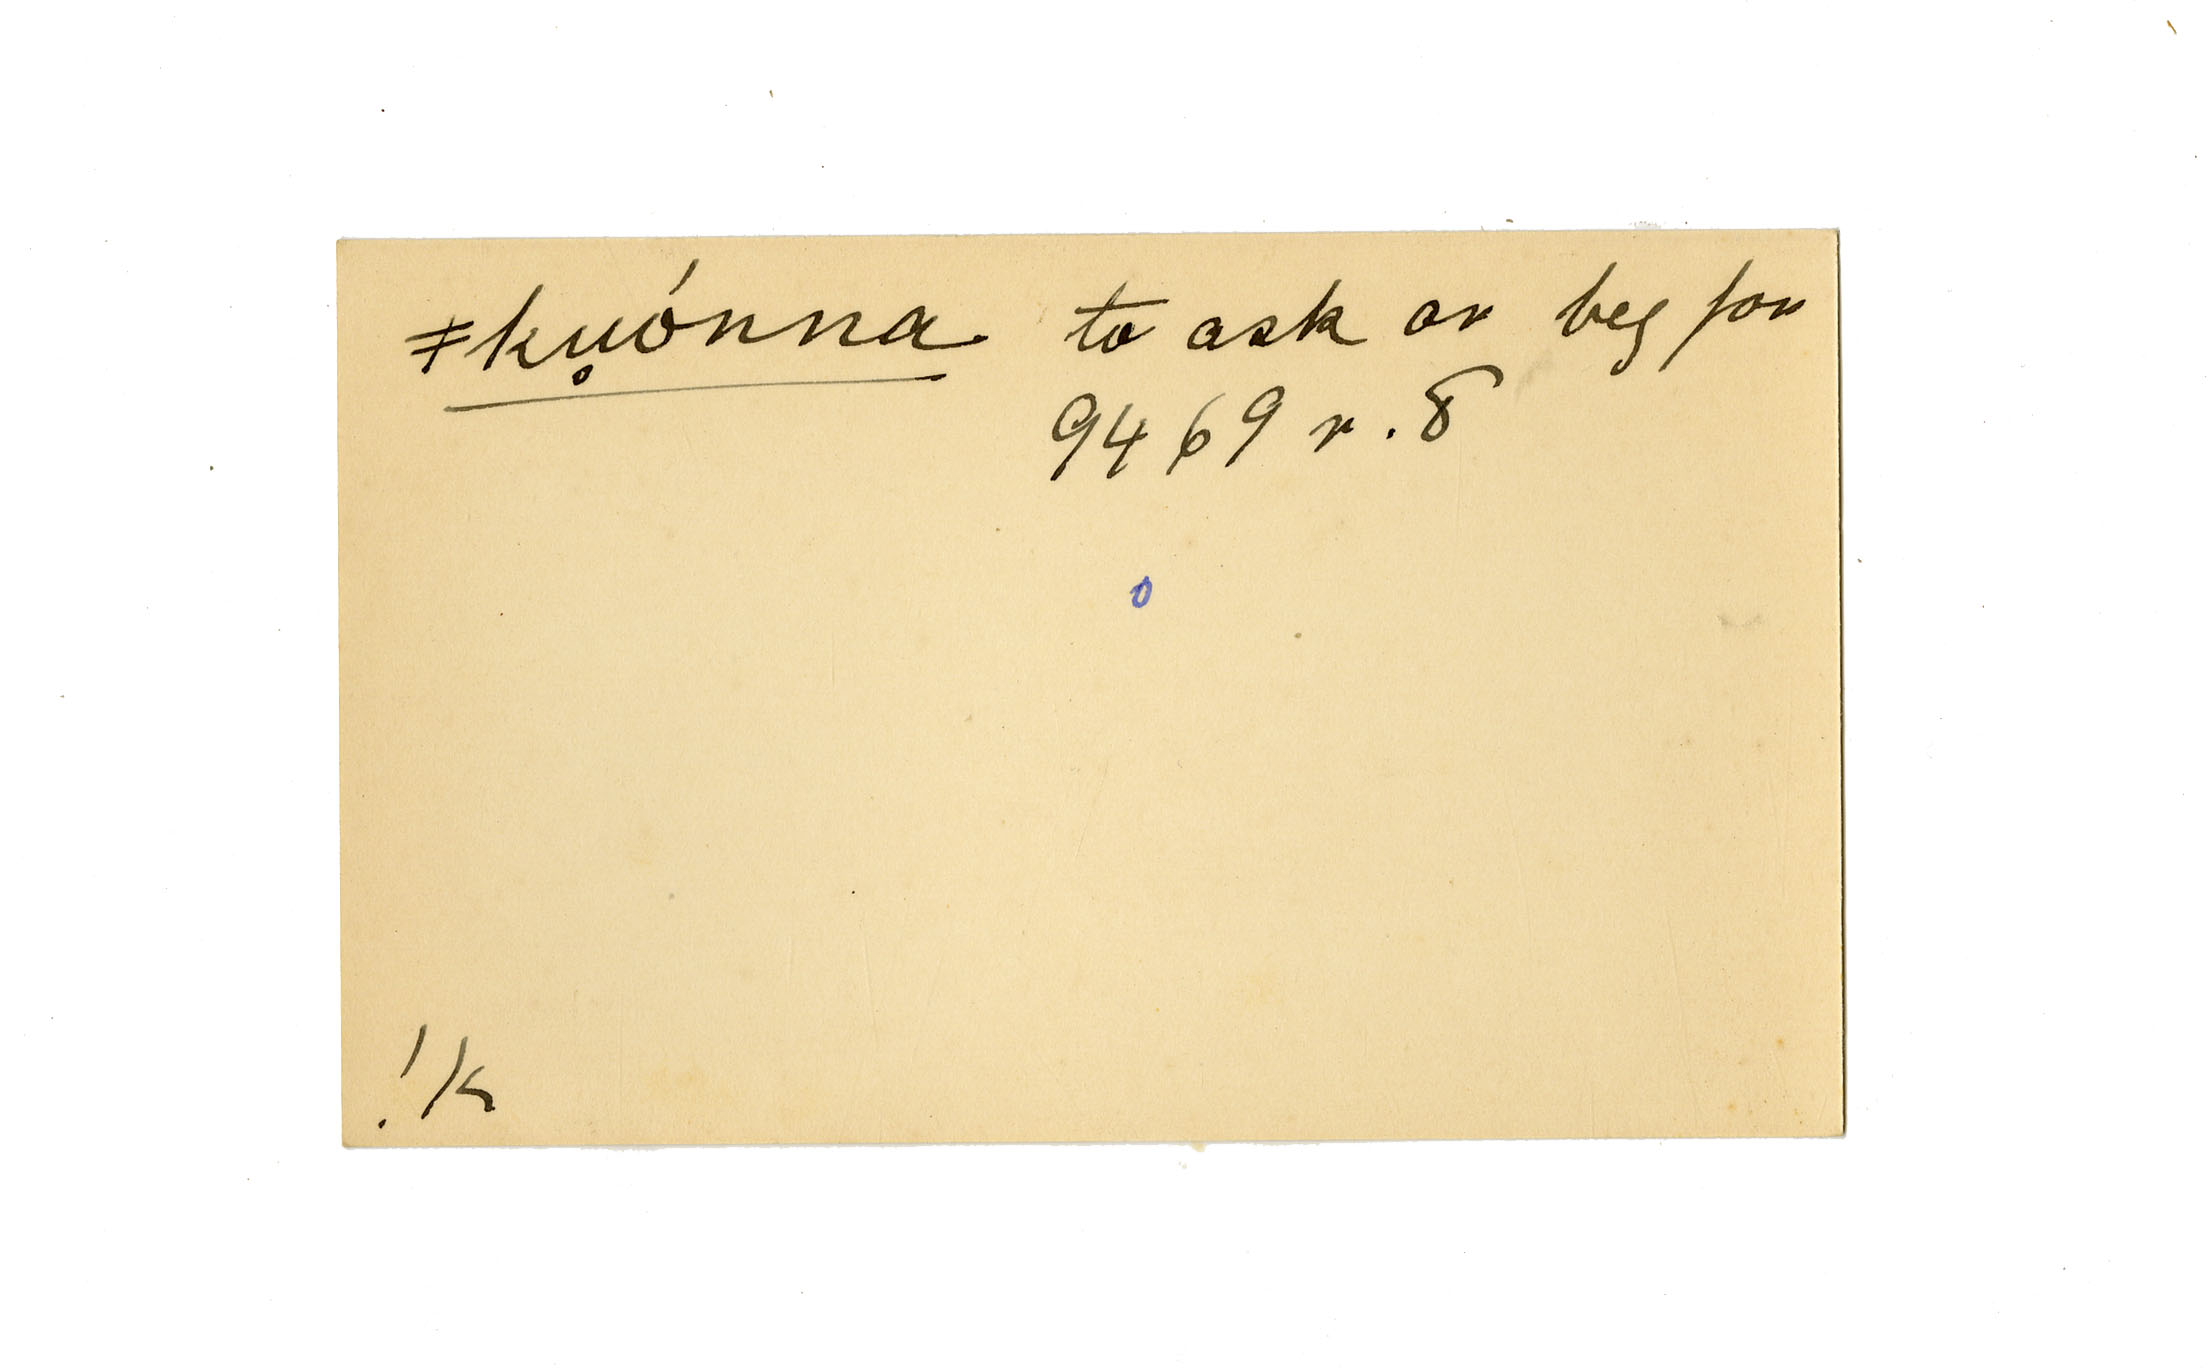 ǂku̥ónna to ask or beg for
9469 r. 8
o
!k